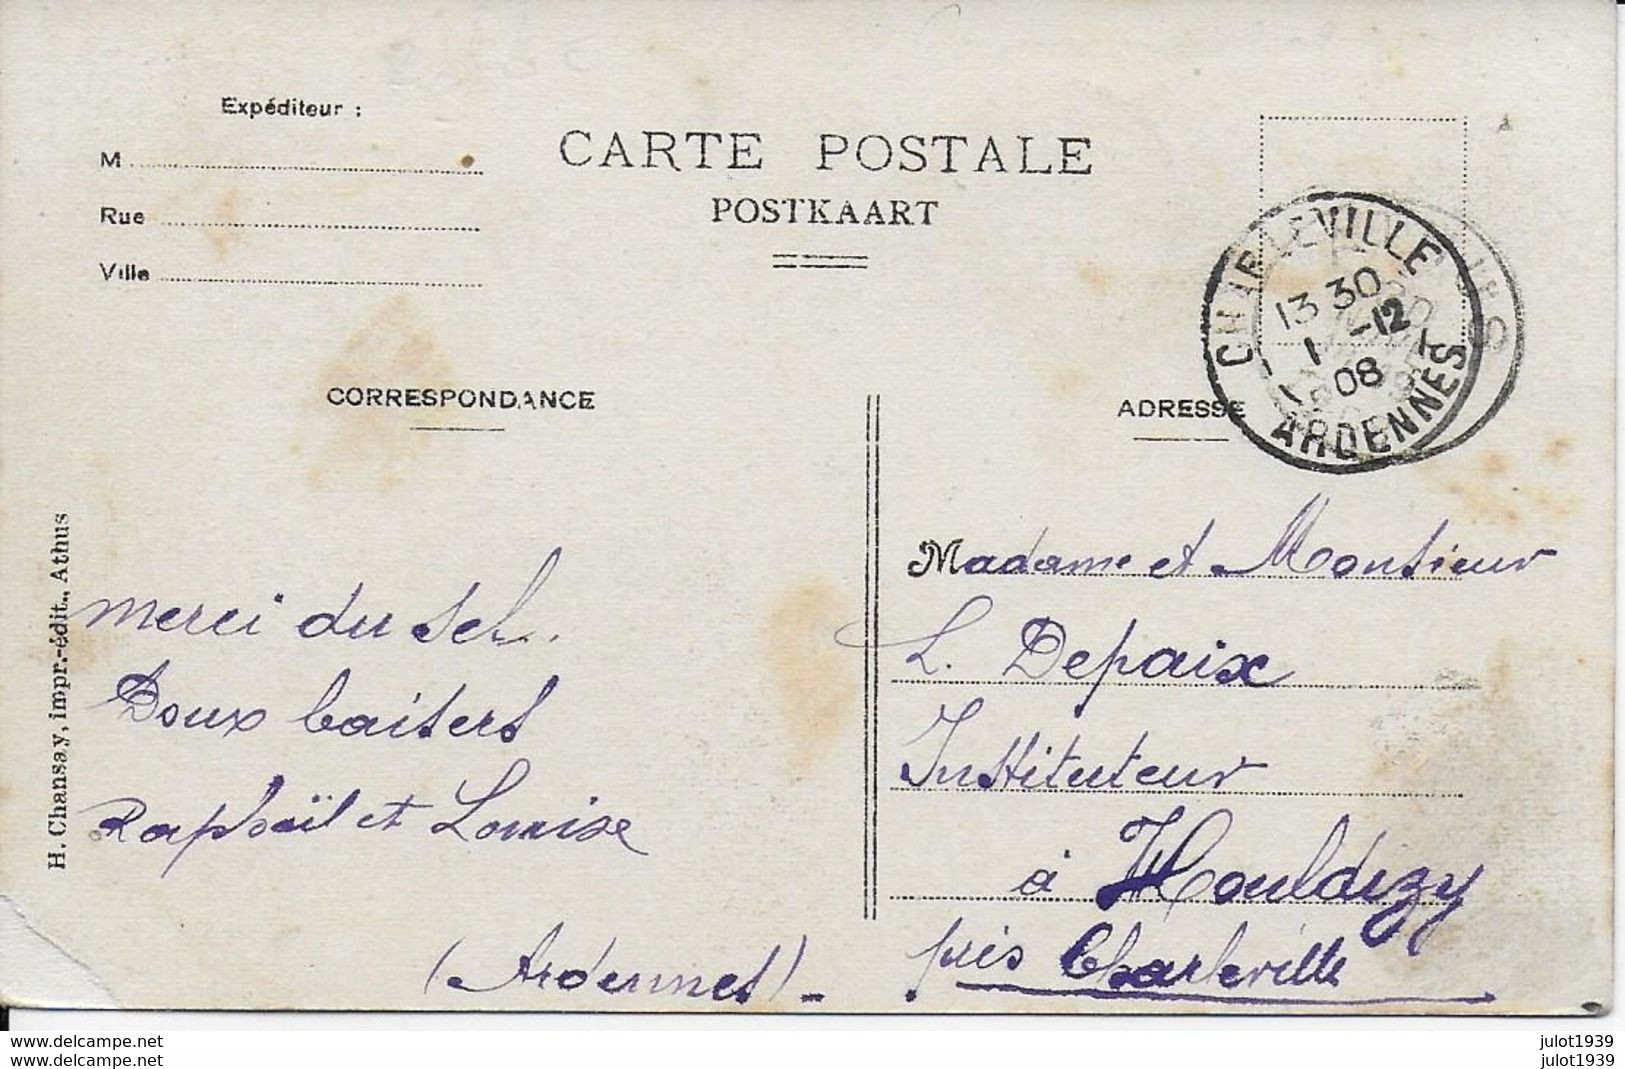 Expéditeur :
M
Rue
Ville
CARTE POSTALE
POSTKAART
CHARLEVILLE
13 30
1 -12
08
ARDENNES
CORRESPONDANCE
ADRESSE
H. Chansay, impr.-édit., Athus
merci du sel.
Doux baisers
Raphaël et Louise
Madame et Monsieur
L. Depaix
Instituteur
à Houldizy
près Charleville
(Ardennes)
www.delcampe.net
www.delcampe.net
julot1939
julot1939